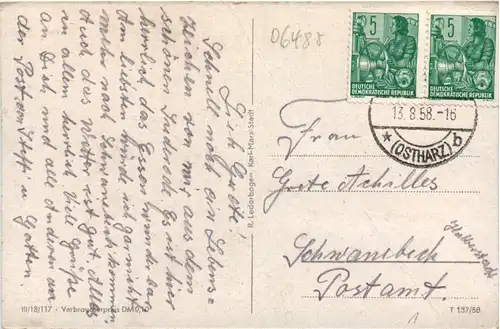 06485
5
DEUTSCHE
DEMOKRATISCHE REPUBLIK
5
DEUTSCHE
DEMOKRATISCHE REPUBLIK
13.8.58.-16
* (OSTHARZ) b
Liebe Grete!
Schnell noch ein Lebens=
zeichen von mir aus dem
schönen Luderode. Es ist hier
herrlich, das Essen wunderbar
am liebsten würde ich gar nicht
mehr nach Schwanebeck kommen.
Auch das Wetter ist gut. Alles
in allem herrlich. Viele Grüße
an Dich und alle anderen von
der Post von Steffi u.
Gatten
R. Lederbogen, Karl-Marx-Stadt
Frau
Grete Achilles
Schwanebeck
Halberstadt
Postamt.
III/18/117 - Verbraucherpreis DM 0,10
T 137/58